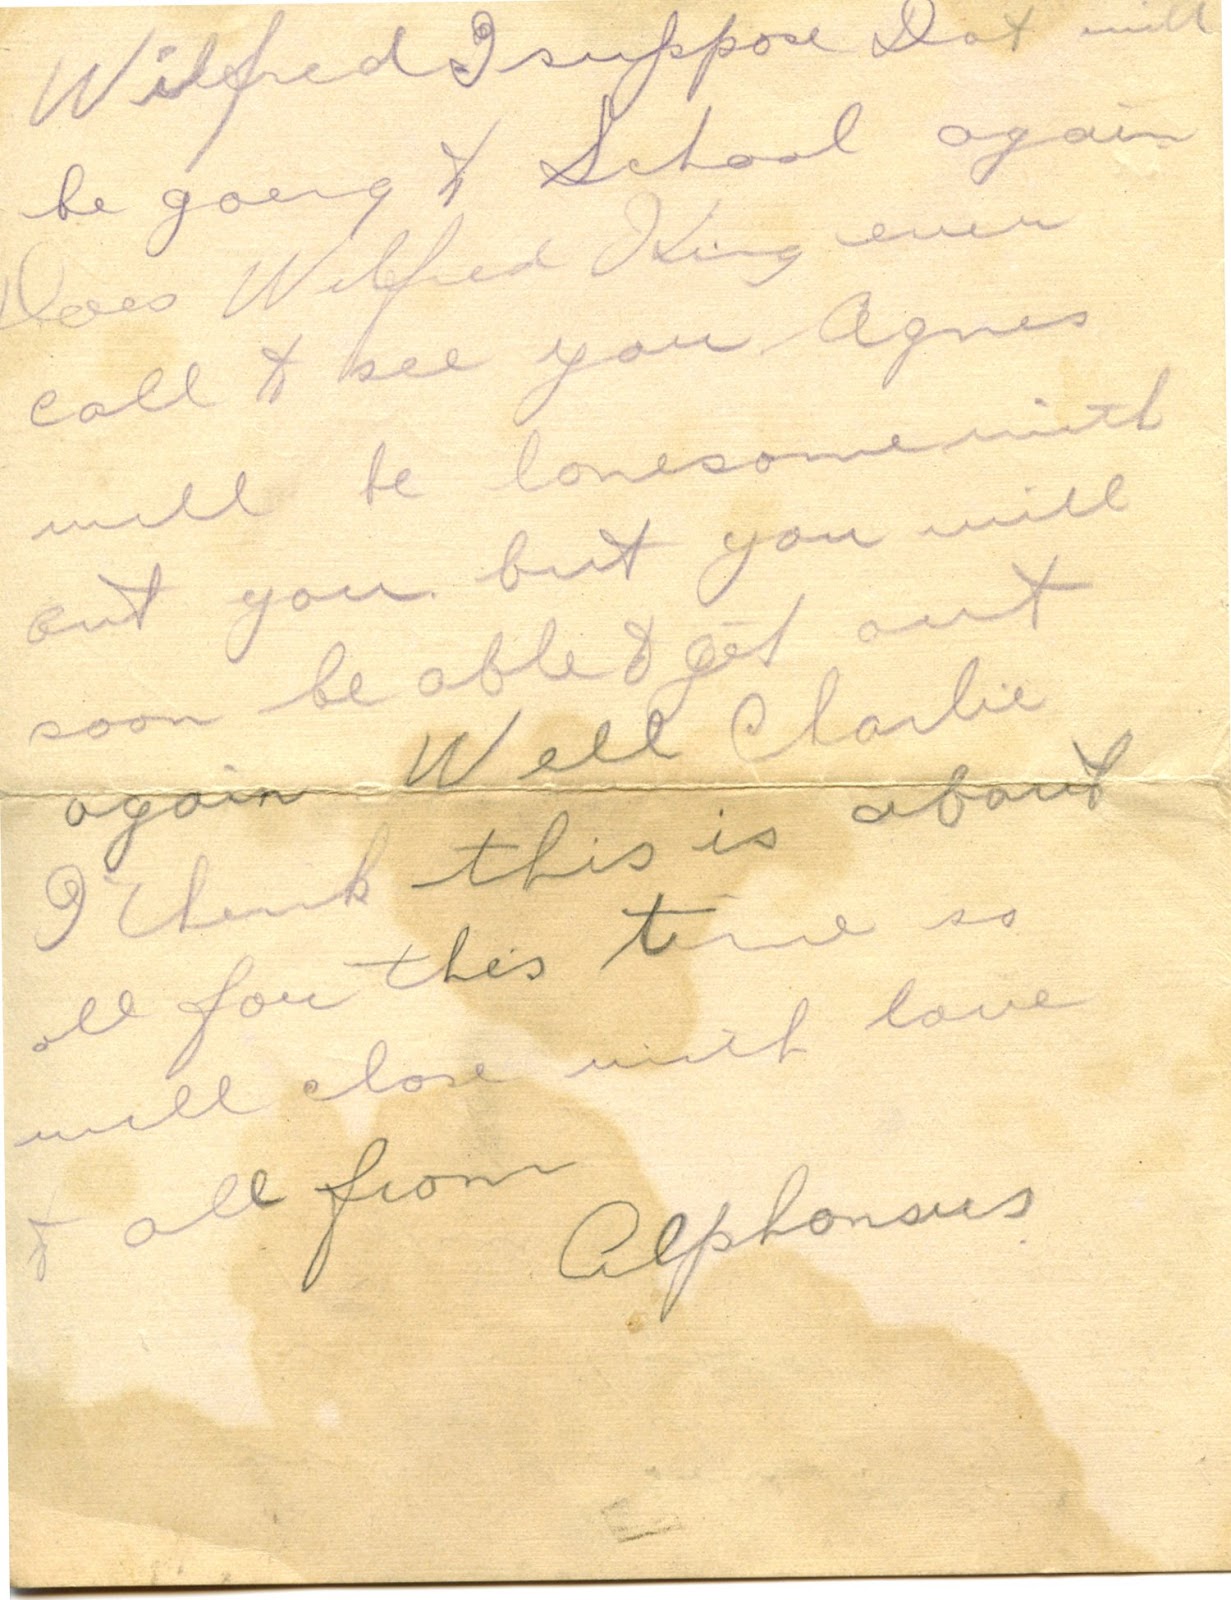 Wilfred I suppose Dot will
be going to School again
Does Wilfred King ever
call to see you Agnes
will be lonesome with
out you but you will
soon be able to get out
again Well Charlie
I think this is about
all for this time so
will close with love
to all from
Alphonsus